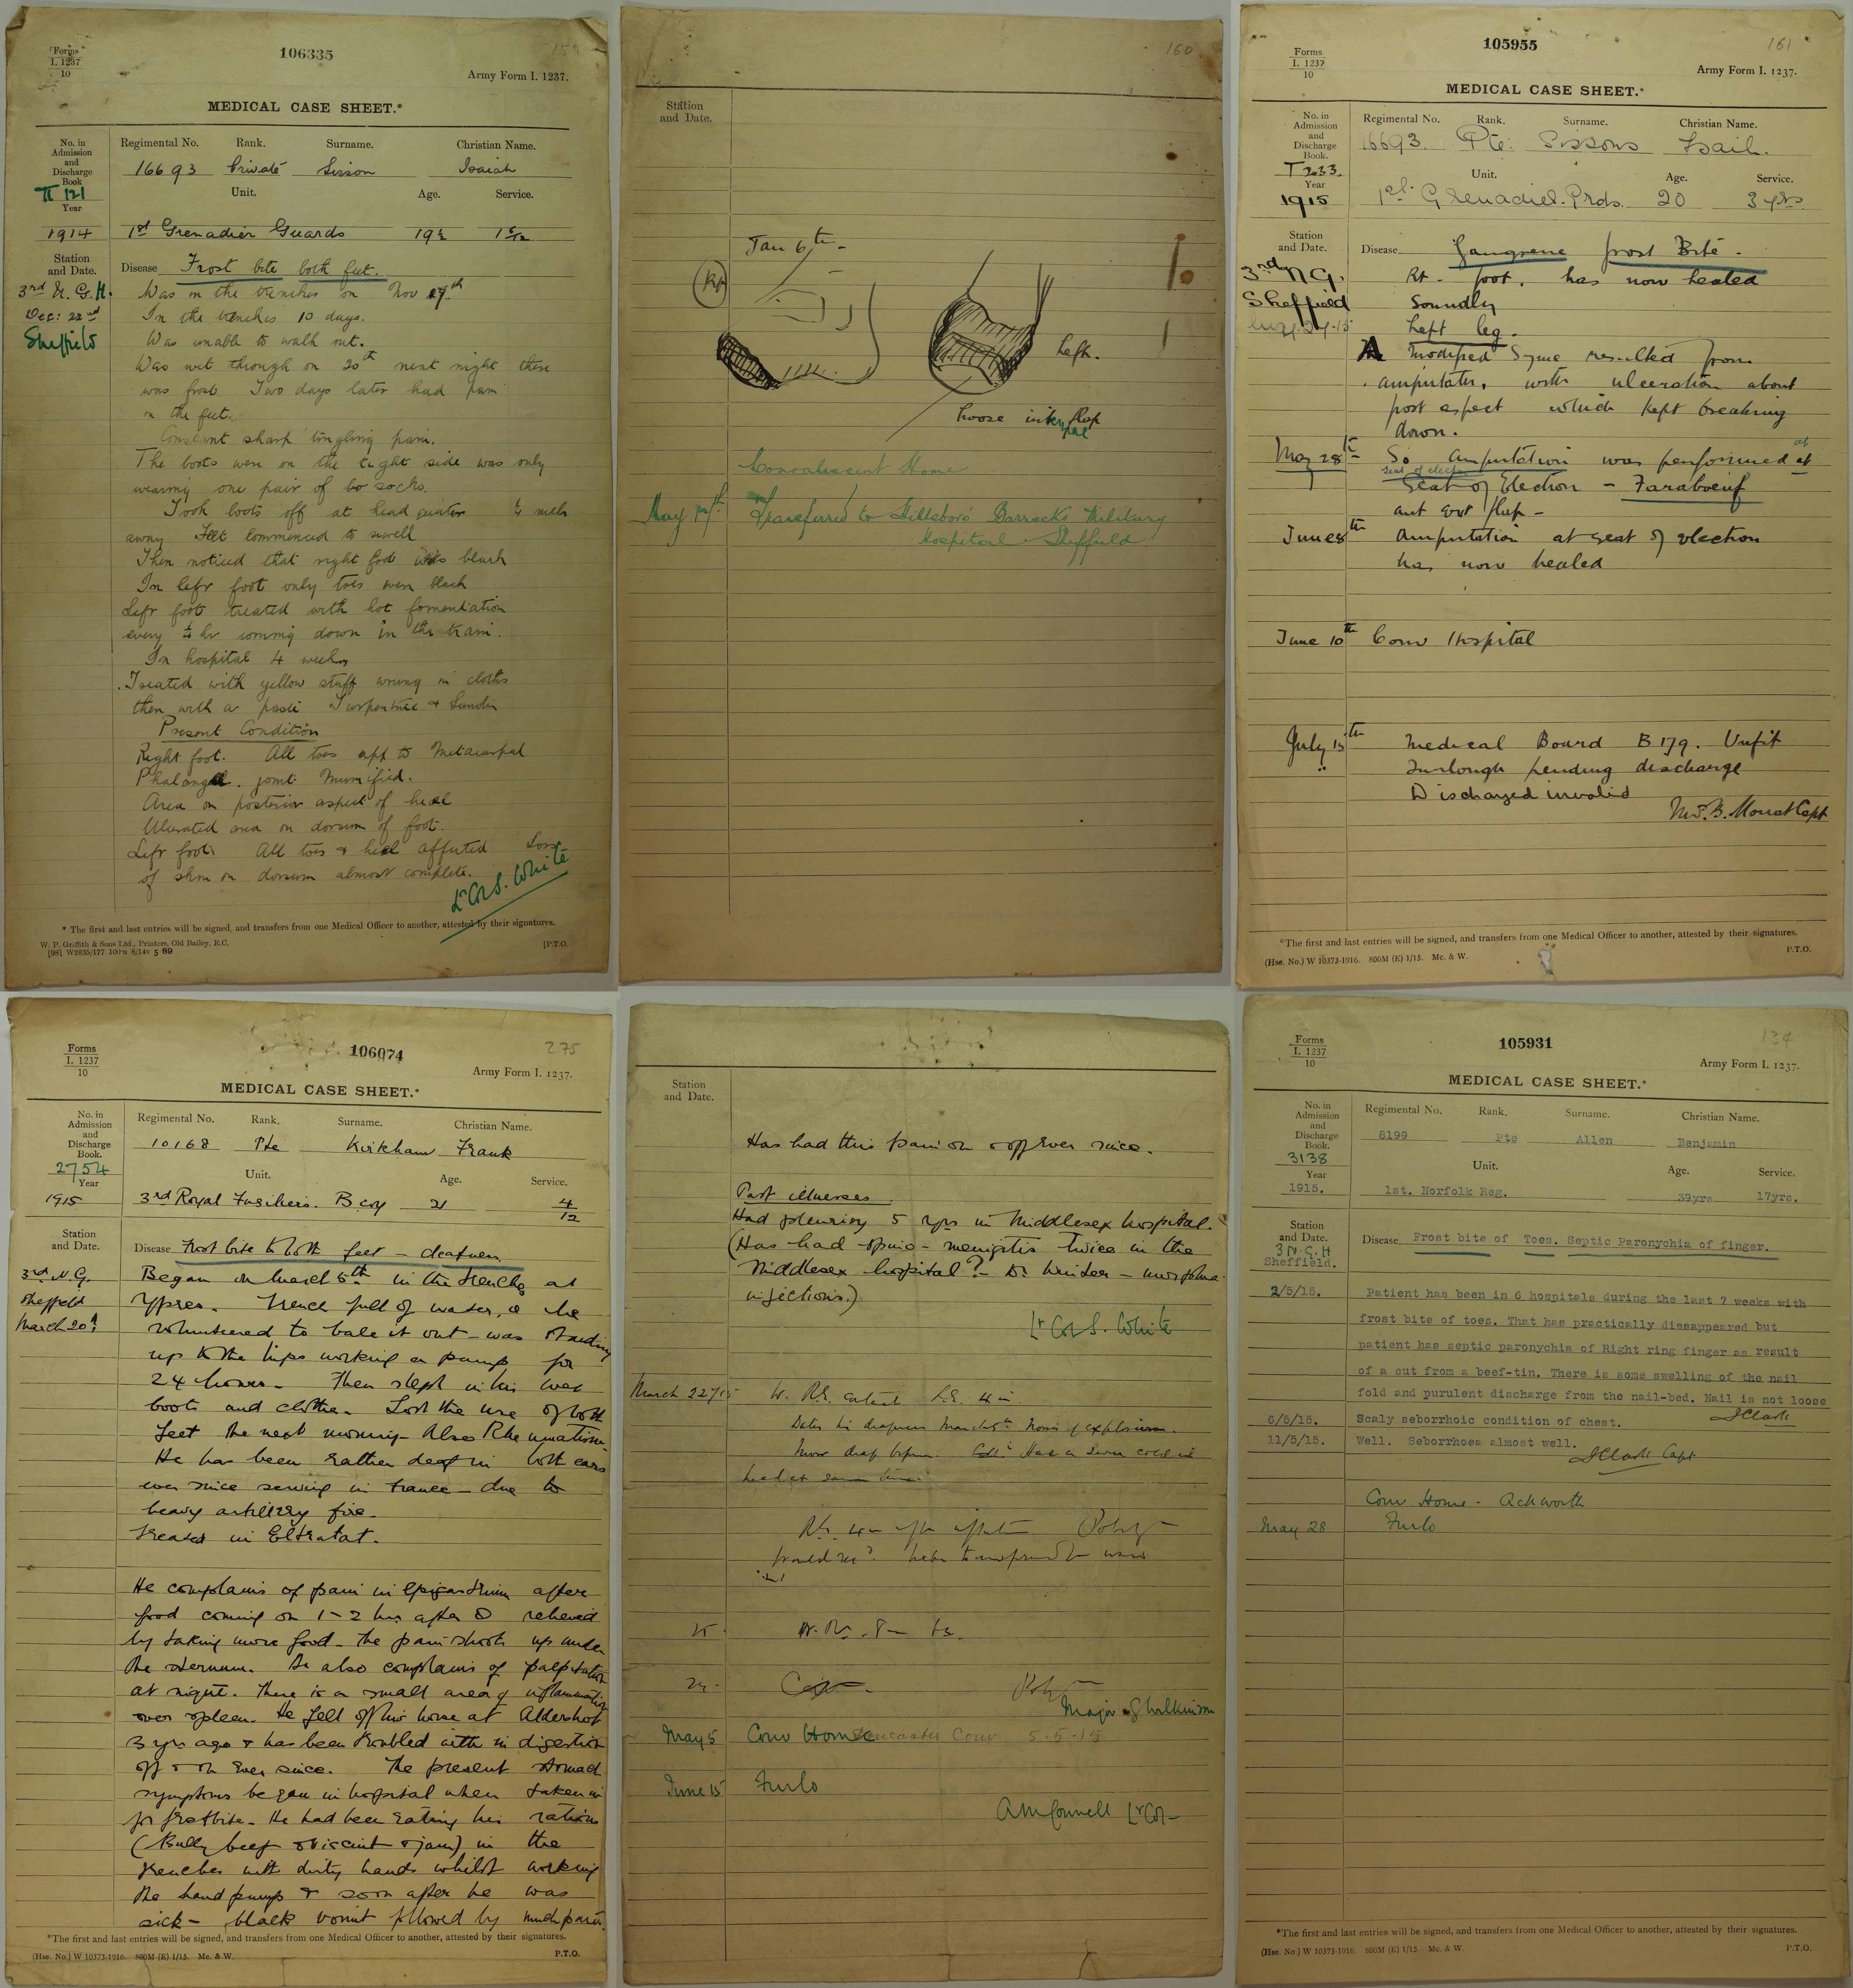 Forms
I. 1237
10
106335
159
Army Form I. 1237.
MEDICAL CASE SHEET.*
No. in
Admission
and
Discharge
Book
Regimental No. Rank. Surname. Christian Name.
16693 Private Sisson Isaiah
II 121
Year
Unit. Age. Service.
1914
1st Grenadier Guards 19½
Station
and Date.
Disease Frost bite both feet.
3rd N. G. H.
Was in the trenches on Nov 17th
Dec: 22nd
In the trenches 10 days.
Sheffield
Was unable to walk out.
Was wet through on 20th next night there
was frost Two days later had pain
in the feet.
Constant sharp tingling pain.
The boots were on the tight side was only
wearing one pair of socks.
Took boots off at head quarters
away Feet commenced to swell
Then noticed that right foot was black
In left foot only toes were black
Left foot treated with hot fomentation
every ½ hr coming down in the train.
In hospital 4 weeks
Treated with yellow stuff wrung in cloths
then with a paste Turpentine + Lanolin
Present Condition
Right foot. All toes app to Metacarpal
Phalangeal joint Mummified.
Area on posterior aspect of heel
Ulcerated area on dorsum of foot.
Left foot. All toes & heel affected Loss
of skin on dorsum almost complete.
Lt Col S. White
* The first and last entries will be signed, and transfers from one Medical Officer to another, attested by their signatures.
W. P. Griffith & Sons Ltd., Printers, Old Bailey, E.C.
[98] W2835/177 100m 8/14v 5 89
[P.T.O.
160
Station
and Date.
Jan 6th -
Rt
Left.
Loose internal flap
Convalescent Home
May
Transferred to Hillsboro' Barracks Military
Hospital Sheffield.
Forms
I. 1237
10
105955
161
Army Form I. 1237.
MEDICAL CASE SHEET.*
No. in
Admission
and
Discharge
Book.
Regimental No. Rank. Surname. Christian Name.
16693. Pte: Sissons Isaih.
T 233
Year
Unit. Age. Service.
1915
1st Grenadier Grds. 20 3 yrs.
Station
and Date.
Disease Gangrene frost Bite.
3rd N.G.
Sheffield
Rt - foot. has now healed
Soundly
Left leg.
A modified Syme resulted from
amputatn, with ulceration about
post aspect which kept breaking
down.
May 28th
So amputation was performed at
seat of elect
Seat of Election - Faraboeuf
ant ext flap -
June 8th
Amputation at seat of election
has now healed
June 10th Conv Hospital
July 15th
Medical Board B179. Unfit
Furlough pending discharge
Discharged invalid
M.J.B. Monat Capt
*The first and last entries will be signed, and transfers from one Medical Officer to another, attested by their signatures.
(Hse. No.) W 10373-1916. 800M (E) 1/15. Mc. & W.
P.T.O.
Forms
I. 1237
10
106074
275
Army Form I. 1237.
MEDICAL CASE SHEET.*
No. in
Admission
and
Discharge
Book.
Regimental No. Rank. Surname. Christian Name.
10168 Pte Kirkham Frank
2754
Year
Unit. Age. Service.
1915
3rd Royal Fusiliers. B coy 21 4/12
Station
and Date.
Disease Frost bite to both feet - deafness
3rd N.G.
Sheffield
March 20th
Began on March 5th in the trenches at
Ypres. Trench full of water, & he
volunteered to bale it out - was standing
up to the hips working a pump for
24 hours - Then slept in his wet
boots and clothes. Lost the use of both
feet the next morning - Also Rheumatism.
He has been rather deaf in both ears
ever since serving in France - due to
heavy artillery fire -
Treated in Eltratat.
He complains of pain in epigastrium after
food coming on 1-2 hrs after & relieved
by taking more food - the pain shoots up under
the sternum. He also complains of palpitation
at night. There is a small area of inflammation
over spleen. He fell off his horse at Aldershot
3 yrs ago & has been troubled with indigestion
off & on ever since. The present stomach
symptoms began in hospital when taken in
for frostbite. He had been eating his rations
(Bully beef & biscuit & jam) in the
trenches with dirty hands whilst working
the hand pump & soon after he was
sick - black vomit followed by much pain.
*The first and last entries will be signed, and transfers from one Medical Officer to another, attested by their signatures.
(Hse. No.) W 10373-1916. 800M (E) 1/15. Mc. & W.
P.T.O.
Station
and Date.
Has had this pain on & off ever since.
Past illnesses.
Had pleurisy 5 yrs in Middlesex hospital.
(Has had spino-menigitis twice in the
Middlesex hospital? - Dr Winter - morphia
injections.)
Lt Col S. White
March 22/15
Dates his deafness March 5th Noise of explosion.
Never deaf before. Has a severe cold in
head at same time.
25
29.
Major Wilkinson
May 5 Conv Home Conv 5.5.15
June 15 Furlo
A M Connell Lt Col -
Forms
I. 1237
10
105931
134
Army Form I. 1237.
MEDICAL CASE SHEET.*
No. in
Admission
and
Discharge
Book.
Regimental No. Rank. Surname. Christian Name.
8199 Pte Allen Benjamin
3138
Year
Unit. Age. Service.
1915.
1st. Norfolk Reg. 39yrs 17yrs.
Station
and Date.
Disease Frost bite of Toes. Septic Paronychia of finger.
3 N.G.H
Sheffield.
2/5/15. Patient has been in 6 hospitals during the last 7 weeks with
frost bite of toes. That has practically dissappeared but
patient has septic paronychia of Right ring finger as result
of a cut from a beef-tin. There is some swelling of the nail
fold and purulent discharge from the nail-bed. Nail is not loose
6/5/15. Scaly seborrhoic condition of chest. J Clark
11/5/15. Well. Seborrhoea almost well.
J Clark Capt
Conv Home - Ackworth
May 28 Furlo
*The first and last entries will be signed, and transfers from one Medical Officer to another, attested by their signatures.
(Hse. No.) W 10373-1916. 800M (E) 1/15. Mc. & W.
P.T.O.